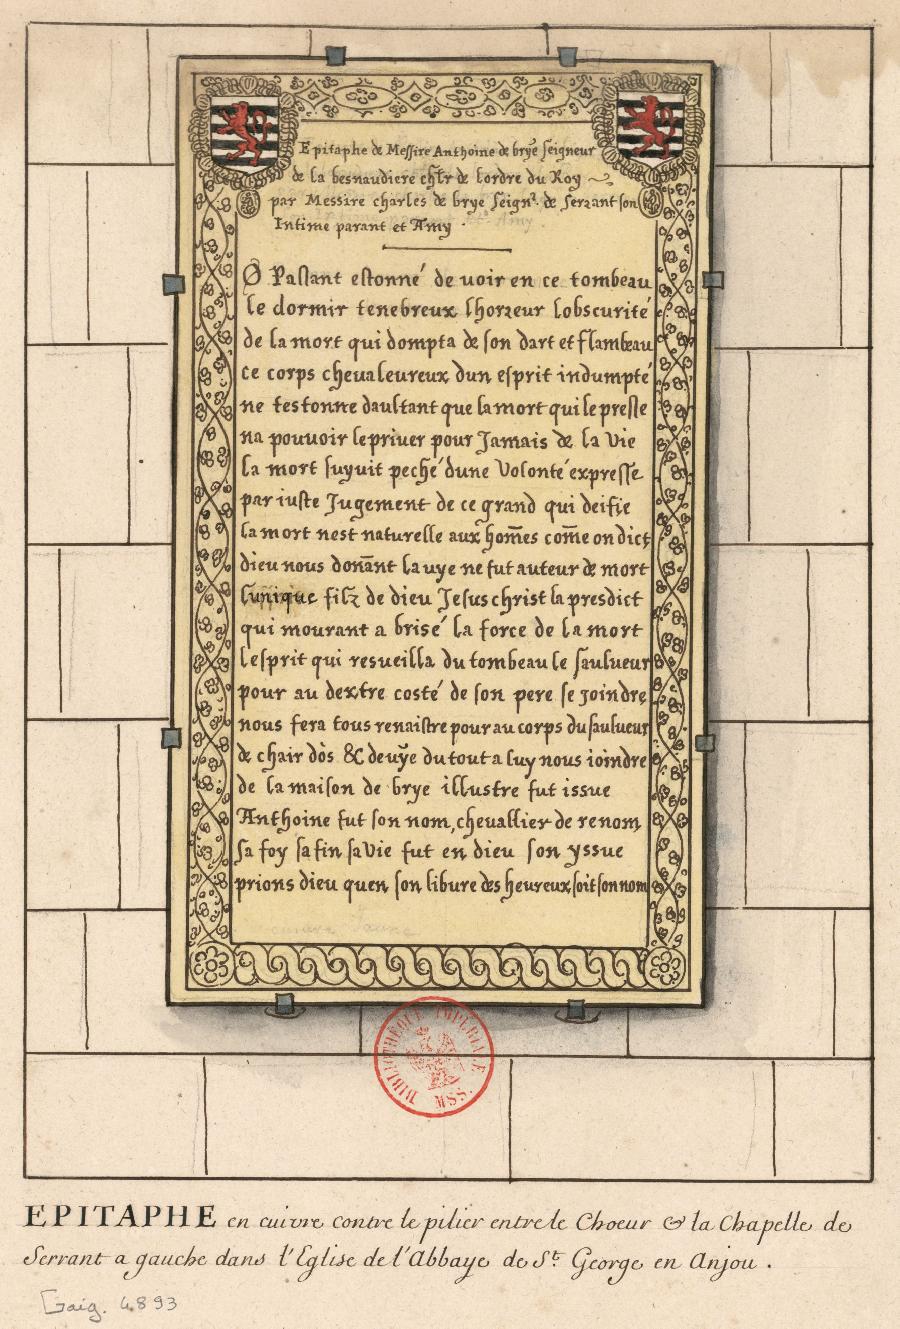 Epitaphe de Messire Anthoine de brye seigneur
de la besnaudiere chlr de lordre du Roy
par Messire charles de brye seignr. de serrant son
Intime parant et Amy
O Passant estonné de voir en ce tombeau
le dormir tenebreux lhorreur lobscurité
de la mort qui dompta de son dart et flambeau
ce corps chevaleureux dun esprit indumpté
ne testonne daultant que la mort qui le presse
na pouvoir le priver pour Jamais de la vie
la mort suyvit peché dune volonté expresse
par iuste Jugement de ce grand qui deifie
la mort nest naturelle aux hom̄es com̄e on dict
dieu nous donānt la vye ne fut auteur de mort
lunique filz de dieu Jesus christ la presdict
qui mourant a brisé la force de la mort
lesprit qui resueilla du tombeau le saulueur
pour au dextre costé de son pere se joindre
nous fera tous renaistre pour au corps du saulueur
de chair dòs & de vye du tout a luy nous ioindre
de la maison de brye illustre fut issue
Anthoine fut son nom, chevallier de renom
sa foy sa fin sa vie fut en dieu son yssue
prions dieu quen son libure des heureux soit son nom
cuivre Jaune
BIBLIOTHÈQUE IMPÉRIALE MSS.
EPITAPHE en cuivre contre le pilier entre le Choeur & la Chapelle de
Serrant a gauche dans l'Eglise de l'Abbaye de St. George en Anjou.
Gaig. 4893